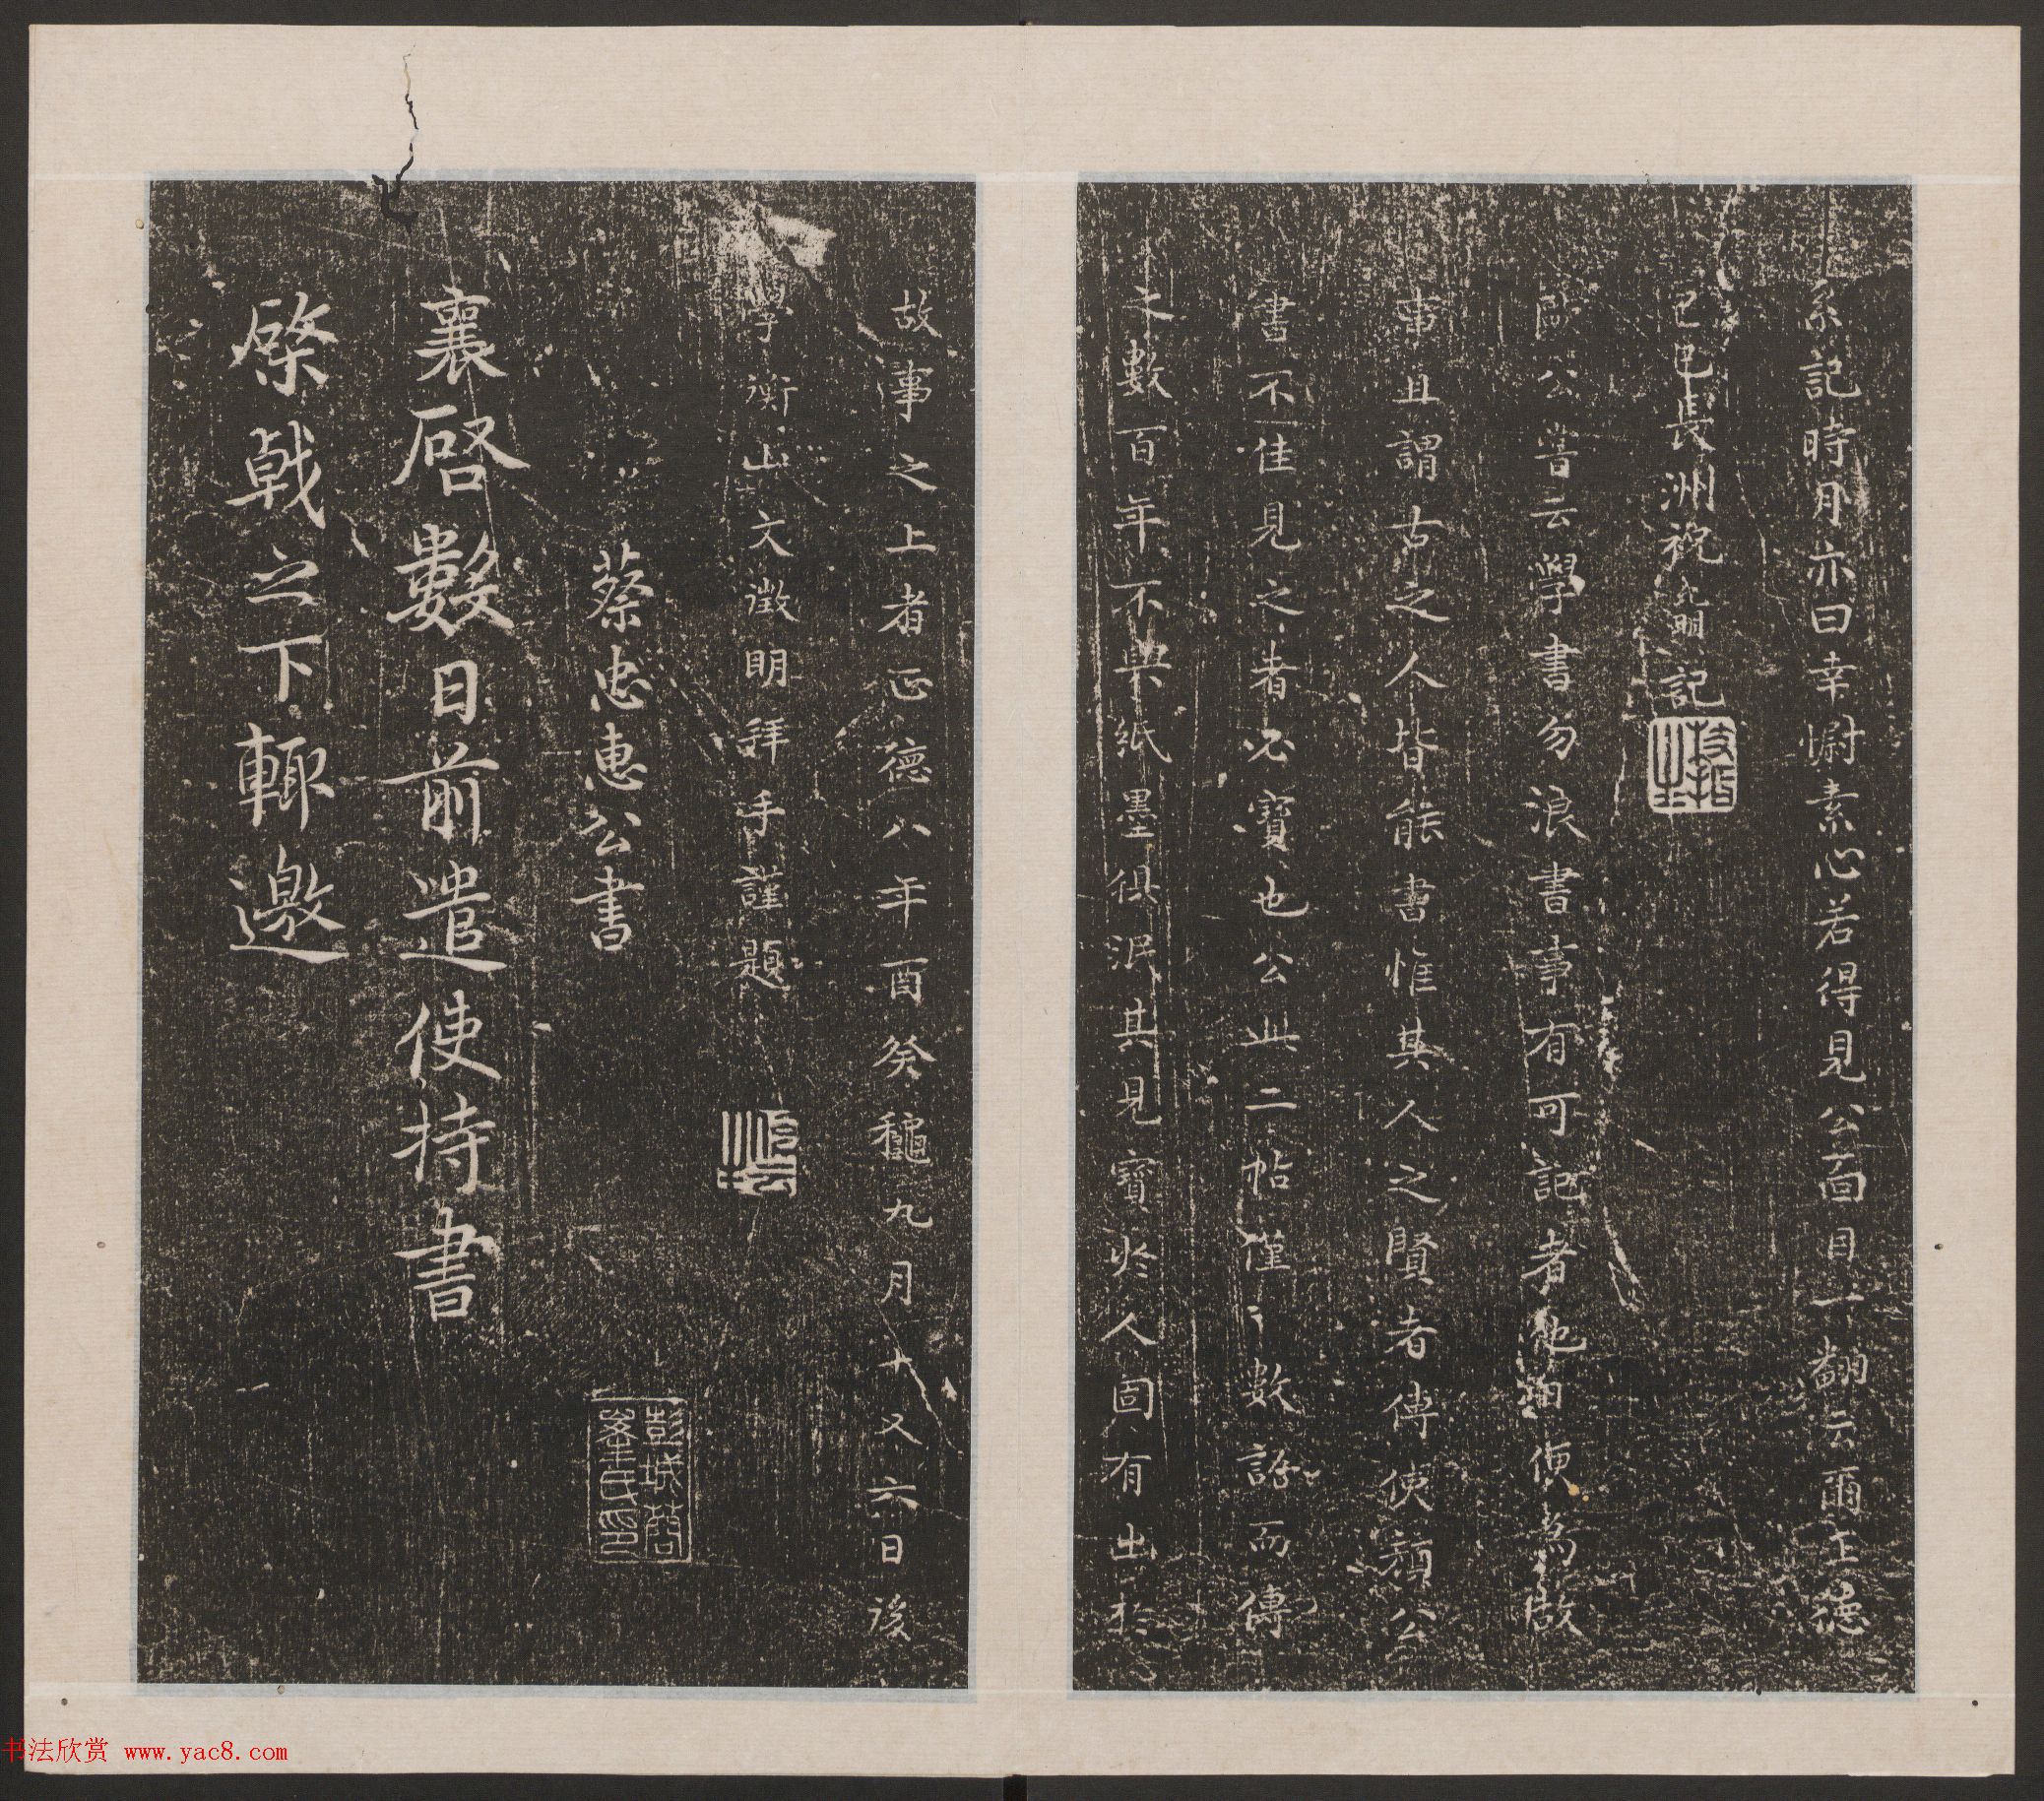 系記時月亦曰幸慰素心若得見公面目一翻云爾正德
己巳長洲祝允明記
歐公嘗云學書勿浪書事有可記者他日便為故
事且謂古之人皆能書惟其人之賢者傳使顏公
書不佳見之者必寶也公此二帖僅〻數語而傳
之數百年不與紙墨俱泯其見寶於人固有出於
故事之上者正德八年酉癸龝九月十又六日後
學衡山文徵明拜手謹題
蔡忠惠公書
襄啓數日前遣使持書
棨戟之下輙邀
书法欣赏 www.yac8.com